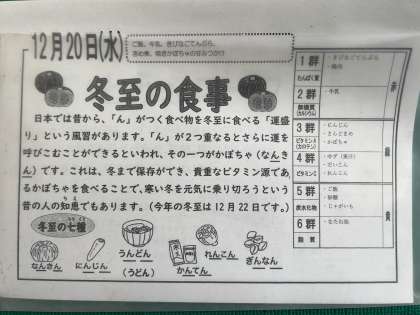 12月20日(水)
ご飯、牛乳、きびなごてんぷら、
冬至の食事
日本では昔から、「ん」がつく食べ物を冬至に食べる「運盛
り」という風習があります。「ん」が2つ重なるとさらに運を
呼びこむことができるといわれ、その一つがかぼちゃ（なんき
ん）です。これは、冬まで保存ができ、貴重なビタミン源であ
るかぼちゃを食べることで、寒い冬を元気に乗り切ろうという
昔の人の知恵でもあります。（今年の冬至は12月22日です。）
冬至の七種
なんきん
にんじん
うんどん
（うどん）
かんてん
れんこん
ぎんなん
1群
たんぱく質
・きびなごてんぷら
2群
無機質
(カルシウム)
・牛乳
3群
ビタミンA
(カロテン)
・にんじん
・さんどまめ
・かぼちゃ
4群
ビタミンC
・ゆず（果汁）
・だいこん
・れんこん
5群
炭水化物
・ご飯
・砂糖
・じゃがいも
6群
脂質
・なたね油
赤
黄